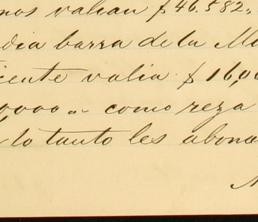 nos valian $46.582,
dia barra de la M
cente valia $16,0
0,000 como reza
lo tanto les abona